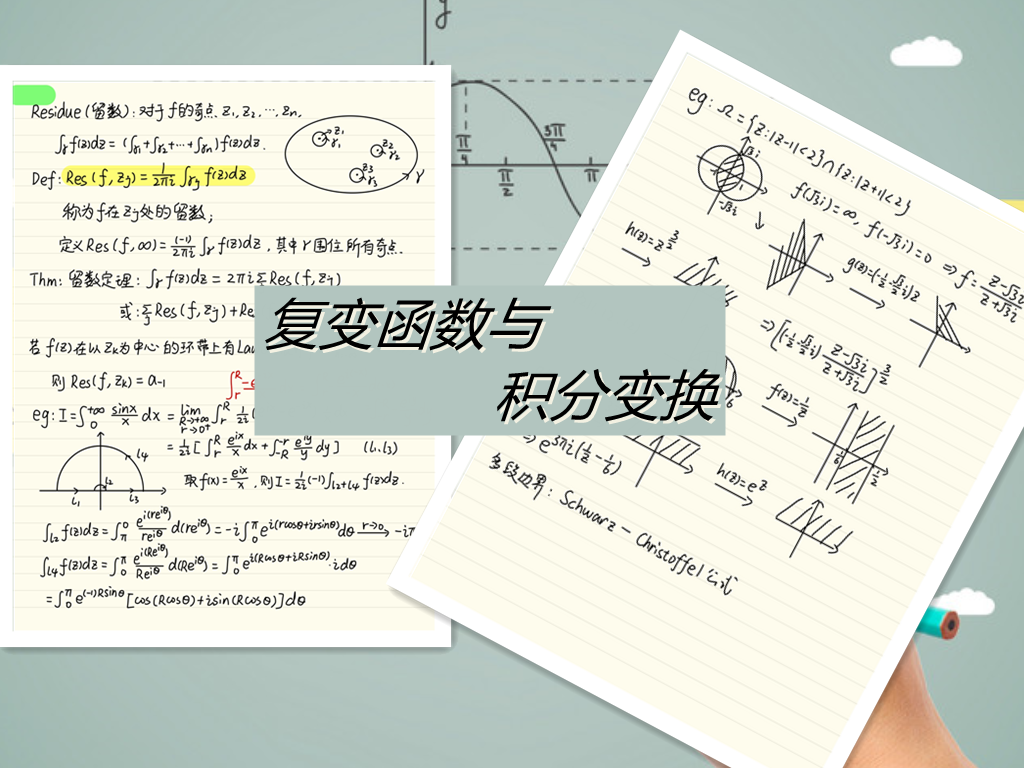 y
π/4
π/2
3π/4
π
Residue (留数): 对于 f 的奇点 z₁, z₂, ⋯, zn,
∫γ f(z)dz = (∫γ₁+∫γ₂+⋯+∫γn) f(z)dz.
z₁ γ₁
z₂ γ₂
z₃ γ₃
γ
Def: Res(f, zj) = 1/2πi ∫γj f(z)dz
称为 f 在 zj 处的留数;
定义 Res(f, ∞) = (-1)/2πi ∫γ f(z)dz, 其中 γ 围住所有奇点.
Thm: 留数定理: ∫γ f(z)dz = 2πi Σj Res(f, zj)
或: Σj Res(f, zj)+Re
若 f(z) 在以 zk 为中心的环带上有 Lau
则 Res(f, zk) = a₋₁
eg: I = ∫₀^+∞ sinx/x dx = lim R→+∞ r→0⁺ ∫r^R 1/2i
= 1/2i [∫r^R e^ix/x dx + ∫-R^-r e^iy/y dy] (l₁, l₃)
取 f(x) = e^ix/x, 则 I = 1/2i (-1) ∫l₂+l₄ f(z)dz.
l₄
l₂
l₁ l₃
∫l₂ f(z)dz = ∫π^0 e^i(re^iθ)/re^iθ d(re^iθ) = -i∫₀^π e^i(rcosθ+irsinθ) dθ r→0 -iπ
∫l₄ f(z)dz = ∫₀^π e^i(Re^iθ)/Re^iθ d(Re^iθ) = ∫₀^π e^i(Rcosθ+iRsinθ)·idθ
= ∫₀^π e^(-1)Rsinθ [cos(Rcosθ)+isin(Rcosθ)]dθ
复变函数与
积分变换
eg: Ω = {z: |z-1|<2}∩{z: |z+1|<2}
√3i
1
-√3i
f(√3i)=∞, f(-√3i)=0 ⇒ f = z-√3i/z+√3i
h(z)=z^3/2
g(z)=(-1/2-√3/2i)z
⇒ [(-1/2-√3/2i) z-√3i/z+√3i]^3/2
f(z)=1/z
1/6
1/2
⇒ e^3πi(1/z-1/6)
h(z)=e^z
多段边界: Schwarz - Christoffel 公式